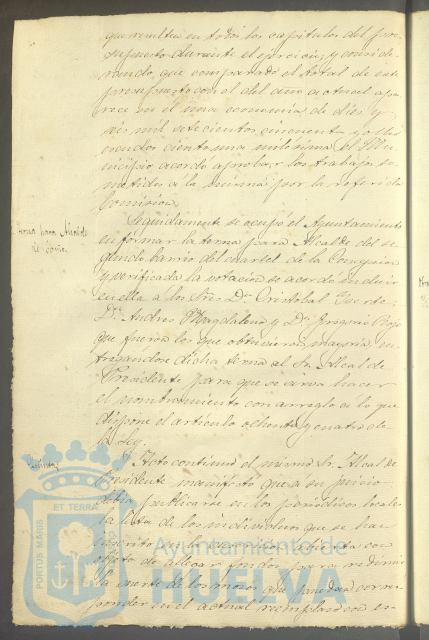 que resulta en todos los capítulos del pre-
supuesto durante el ejercicio, y conside-
rando, que comparado el total de este
presupuesto con el del año actual apa-
rece en él una economía de diez y
seis mil setecientos cincuenta y ocho
escudos ciento una milésimas, el Mu-
nicipio acordó aprobar los trabajos so-
metidos á la misma por la referida
comision.
Terna para Alcalde
de barrio
Seguidamente se ocupó el Ayuntamiento
en formar la terna para Alcalde del se-
gundo barrio del cuartel de la Concepcion
y verificada la votacion se acordó incluir
en ella á los Sres. Dn. Cristóbal
Dn. Andres Magdalena y Dn. Gregorio Rojo
que fueron los que obtuvieron mayoría, en-
tregandose dicha terna al Sr. Alcalde
Presidente para que se sirva hacer
el nombramiento con arreglo á lo que
dispone el artículo ochenta y cuatro de
la Ley.
Quintas
Acto continuo el mismo Sr. Alcalde
Presidente manifestó que á su juicio
debia publicarse en los periódicos locales
la lista de los individuos que se han
suscrito en la abierta con
objeto de allegar fondos para redimir
la suerte de los mozos que puedan corres-
ponder en el actual reemplazo con
ET TERRAE
PORTUS MARIS
Ayuntamiento de
HUELVA